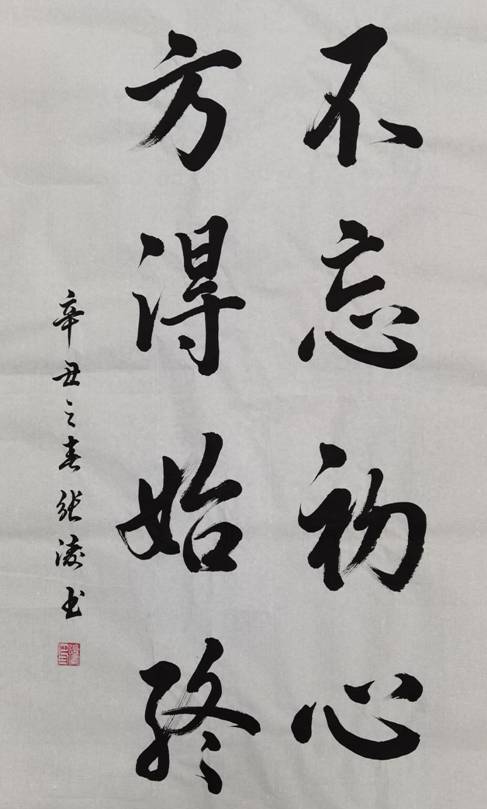 不忘初心
方得始终
辛丑之春张涛书